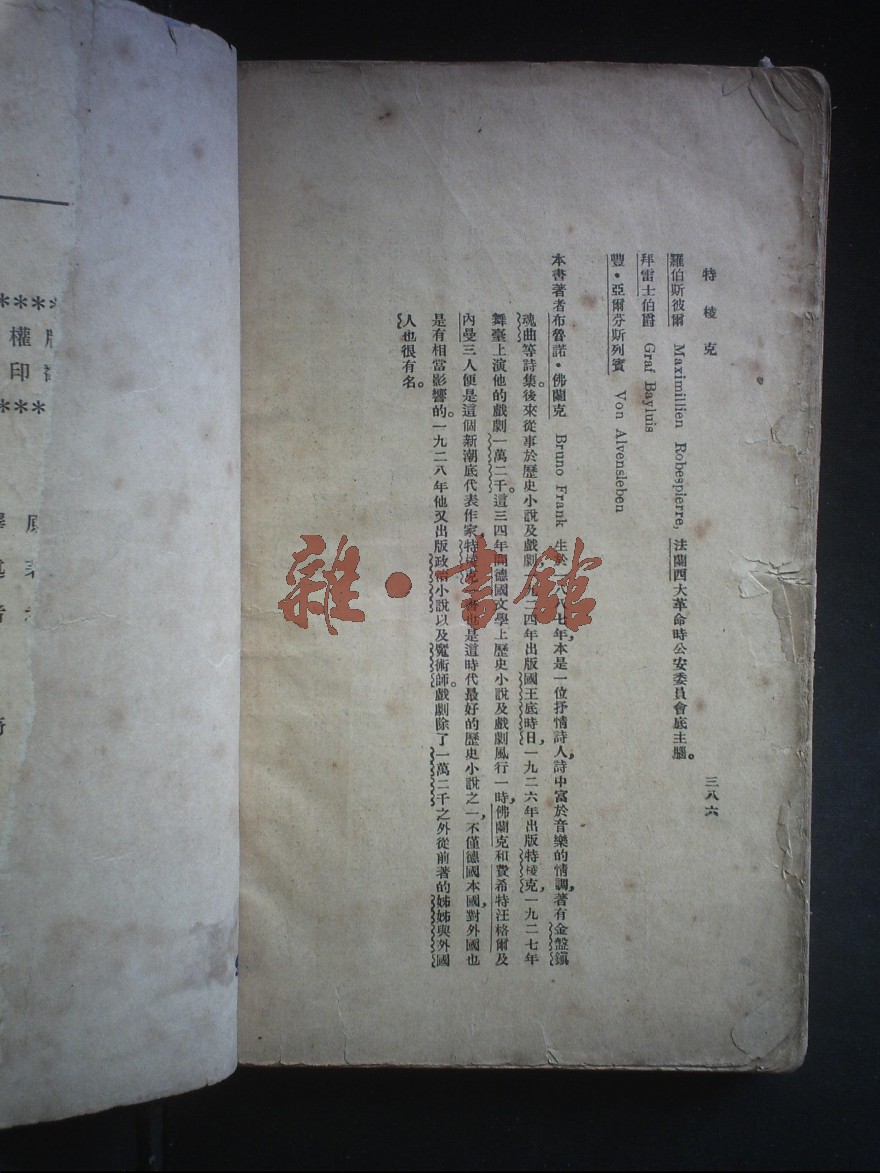 特棱克
三八六
羅伯斯彼爾 Maximillien Robespierre, 法蘭西大革命時公安委員會底主腦。
拜雷士伯爵 Graf Bayluis
豐·亞爾芬斯列賓 Von Alvensleben
本書著者布魯諾·佛蘭克 Bruno Frank 生於 八八七年,本是一位抒情詩人,詩中富於音樂的情調,著有金盤鎮
魂曲等詩集。後來從事於歷史小說及戲劇, 九二四年出版國王底時日,一九二六年出版特棱克,一九二七年
舞臺上演他的戲劇一萬二千。這三四年間德國文學上歷史小說及戲劇風行一時,佛蘭克和費希特汪格爾及
內曼三人便是這個新潮底代表作家特棱克 也是這時代最好的歷史小說之一,不僅德國本國,對外國也
是有相當影響的。一九二八年他又出版政治小說以及魔術師。戲劇除了一萬二千之外從前著的姊姊與外國
人也很有名。
雜·書館
****
權
印
***